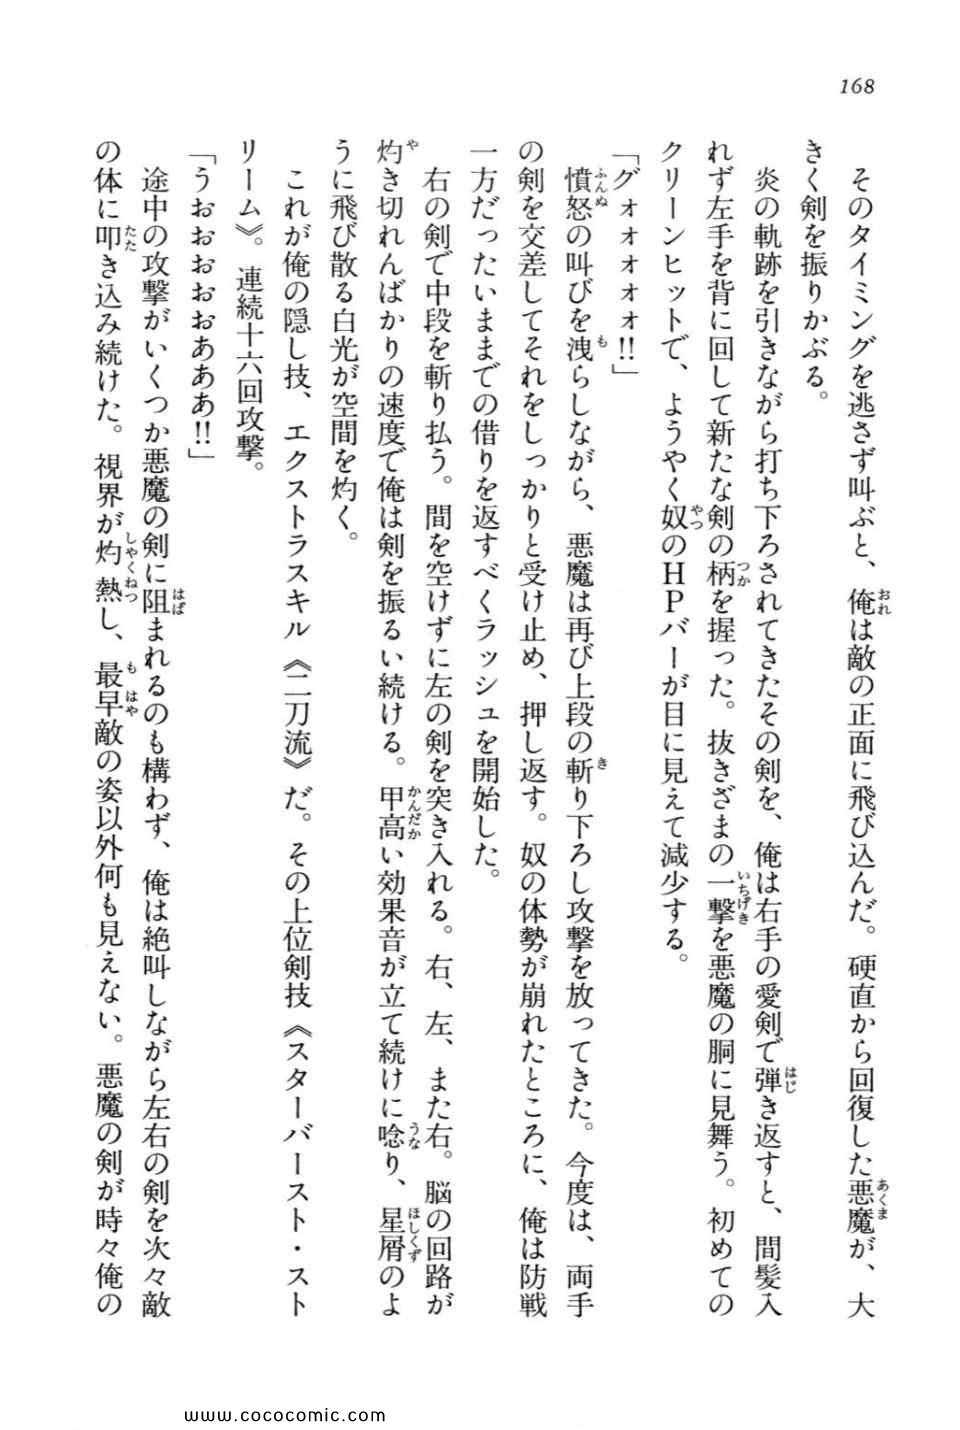 168
そのタイミングを逃さず叫ぶと、俺は敵の正面に飛び込んだ。硬直から回復した悪魔が、大
きく剣を振りかぶる。
炎の軌跡を引きながら打ち下ろされてきたその剣を、俺は右手の愛剣で弾き返すと、間髪入
れず左手を背に回して新たな剣の柄を握った。抜きざまの一撃を悪魔の胴に見舞う。初めての
クリーンヒットで、ようやく奴のHPバーが目に見えて減少する。
「グォォォォォ!!」
憤怒の叫びを洩らしながら、悪魔は再び上段の斬り下ろし攻撃を放ってきた。今度は、両手
の剣を交差してそれをしっかりと受け止め、押し返す。奴の体勢が崩れたところに、俺は防戦
一方だったいままでの借りを返すべくラッシュを開始した。
右の剣で中段を斬り払う。間を空けずに左の剣を突き入れる。右、左、また右。脳の回路が
灼き切れんばかりの速度で俺は剣を振るい続ける。甲高い効果音が立て続けに唸り、星屑のよ
うに飛び散る白光が空間を灼く。
これが俺の隠し技、エクストラスキル《二刀流》だ。その上位剣技《スターバースト・スト
リーム》。連続十六回攻撃。
「うおおおおあああ!!」
途中の攻撃がいくつか悪魔の剣に阻まれるのも構わず、俺は絶叫しながら左右の剣を次々敵
の体に叩き込み続けた。視界が灼熱し、最早敵の姿以外何も見えない。悪魔の剣が時々俺の
www.cococomic.com